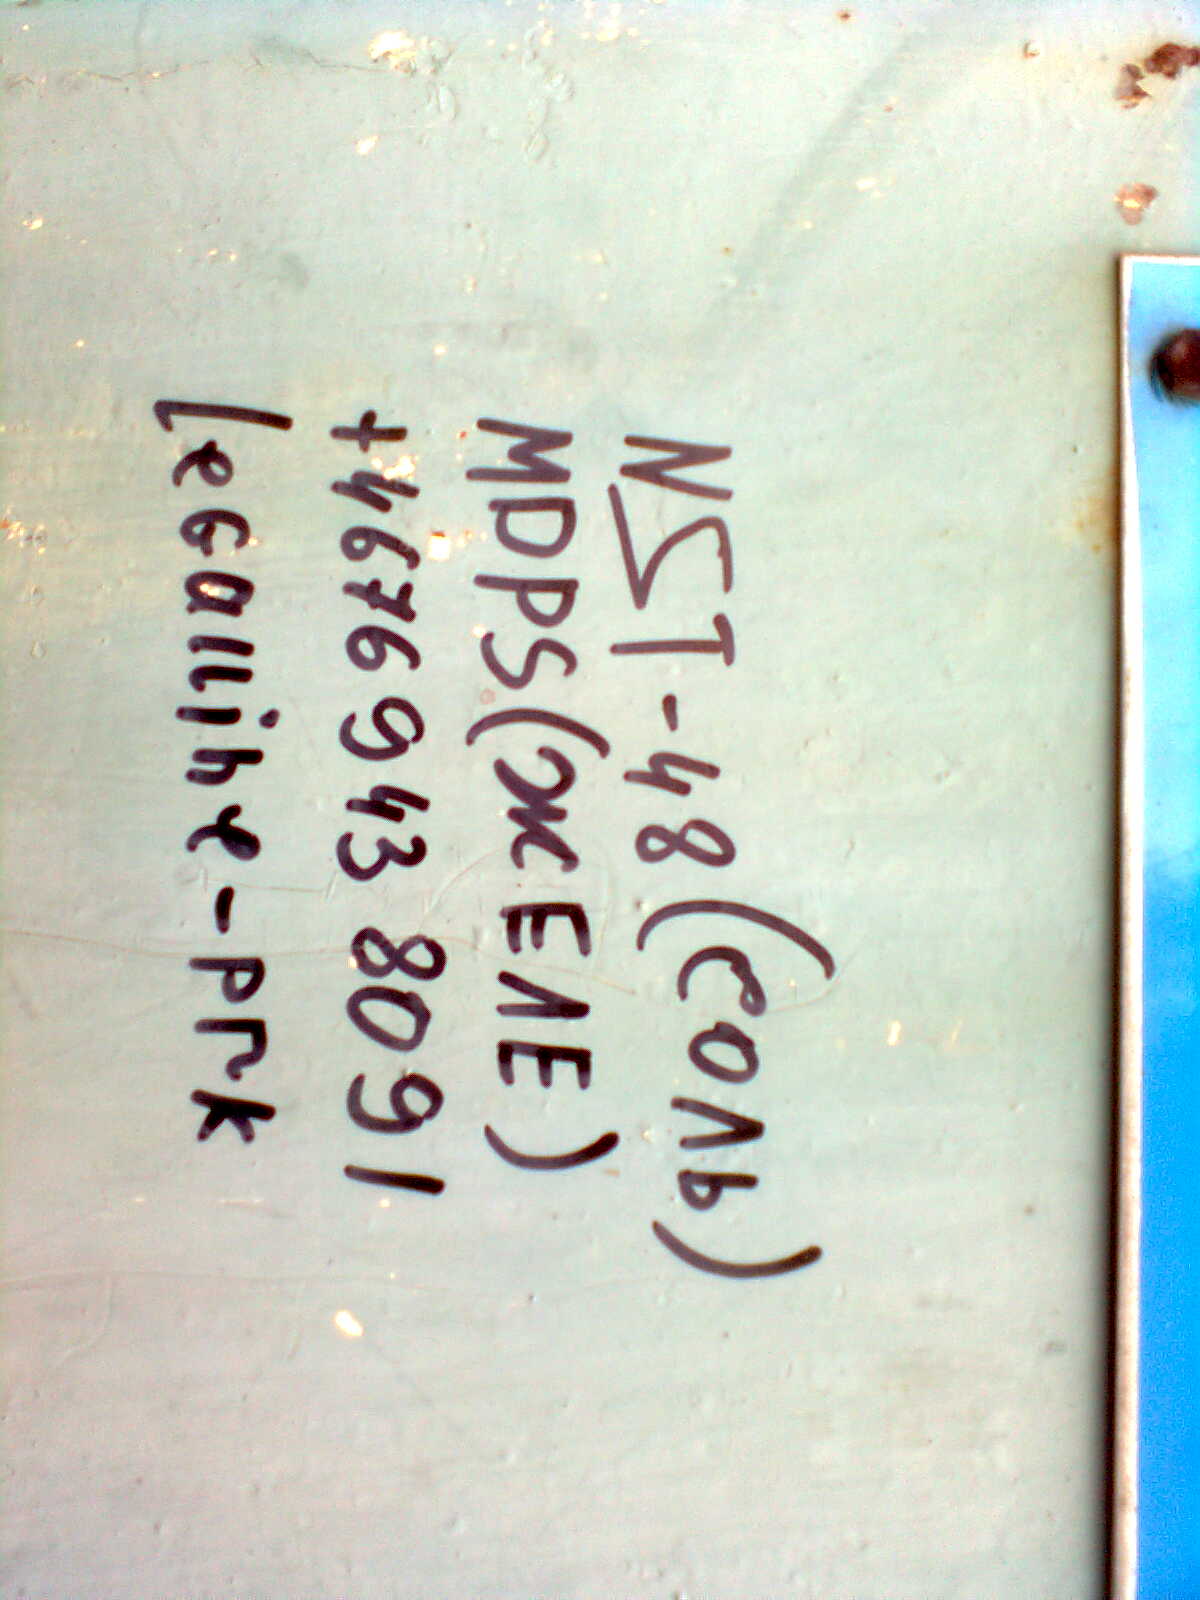 NST-48(соль)
MDPS(жЕЛЕ)
+46769438091
legalline-prk